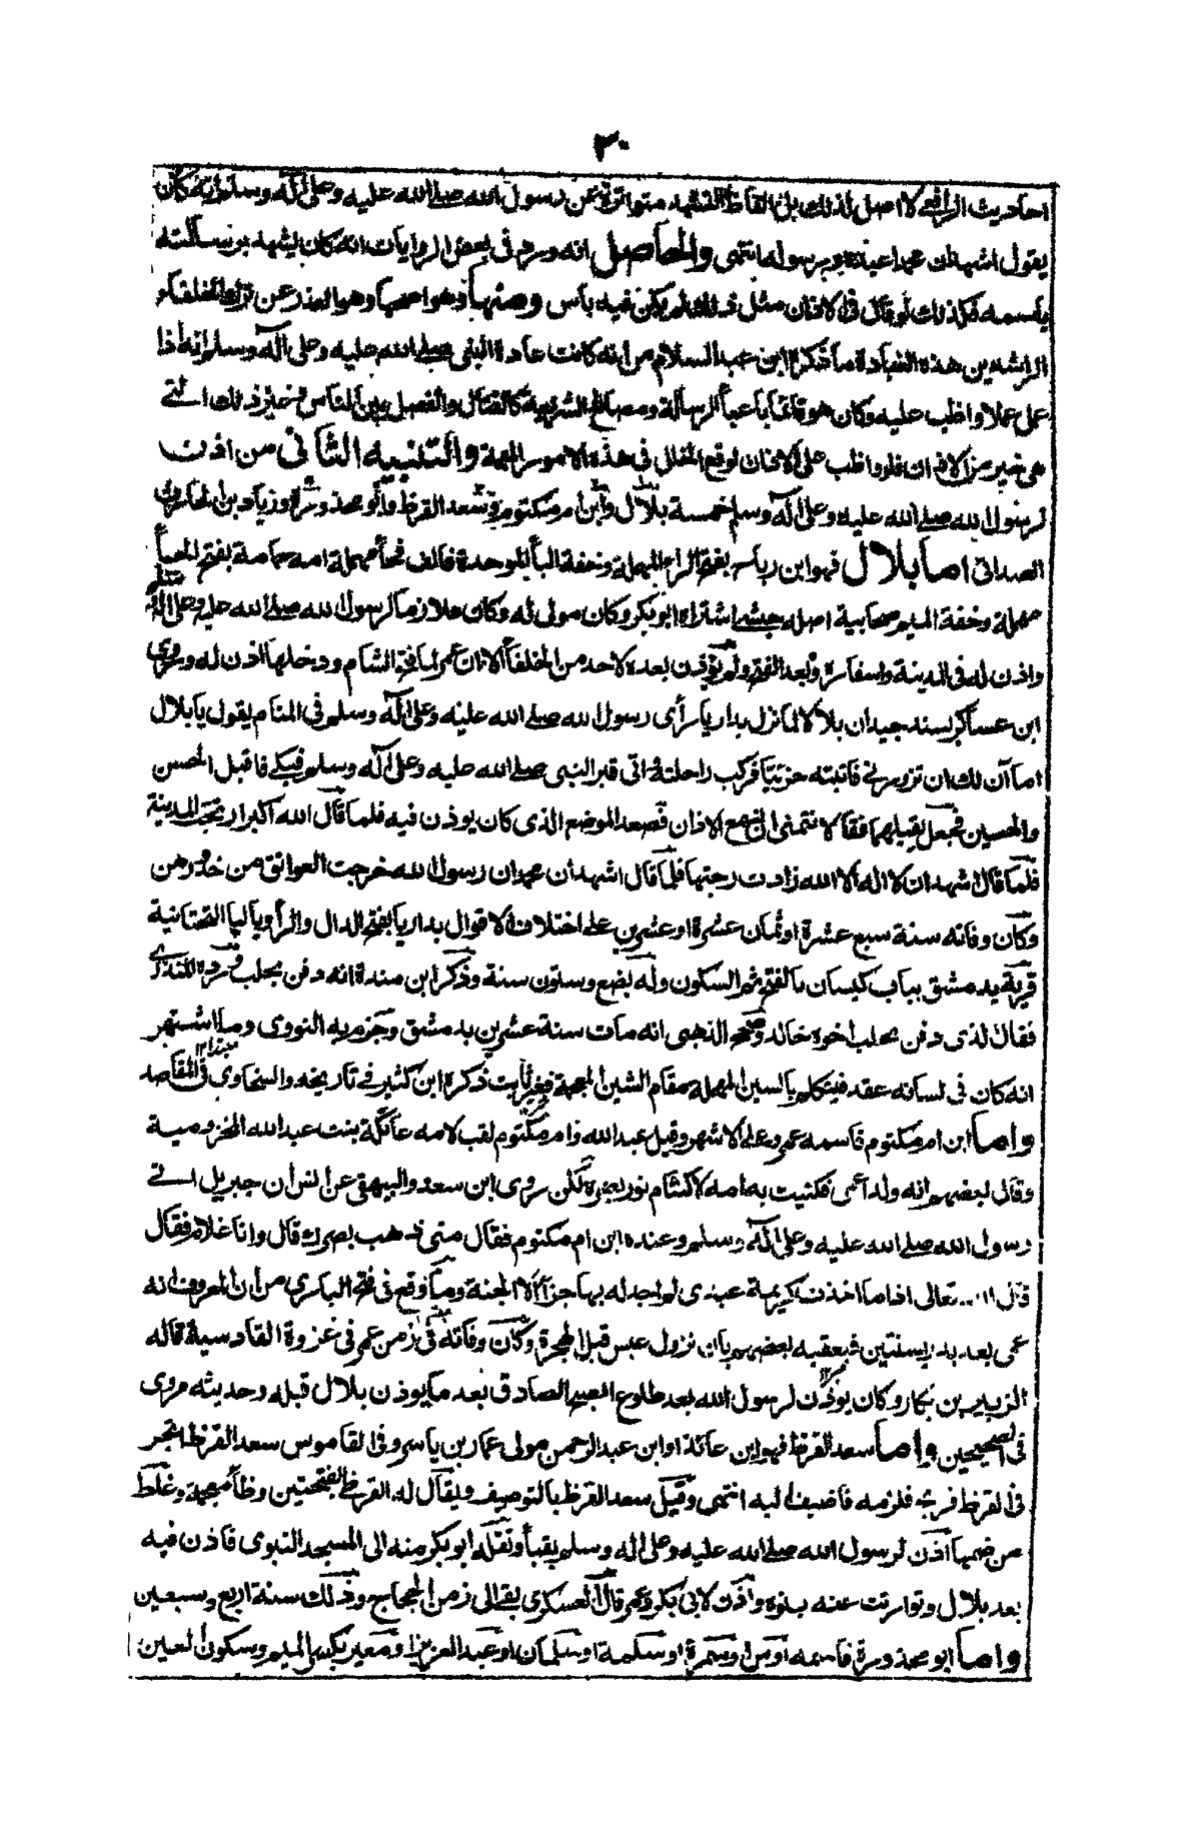 ٣٠
احاديث الرافعي لا اصل لذلك بل الفاظ التشهد متواترة عن رسول الله صلے الله عليه وعلى اله وسلم انه كان
يقول اشهد ان محمدا عبده ورسوله انتهى والحاصل انه ورد فى بعض الروايات انه كان يشهد برسالته
باسمه فكذلك لو قال فى الاذان مثل ذلك لم يكن فيه باس ومنها وهو اصحها وهو العذر عن ترك الخلفاء
الراشدين هذه العبادة ما ذكره ابن عبد السلام من انه كانت عادة النبى صلے الله عليه وعلى اله وسلم انه اذا
عمل عملا واظب عليه وكان هو قائما باعباء الرسالة ومصالح الشريعة كالقتال والفصل بين الناس وغير ذلك التے
هى خير من الاذان فلو واظب على الاذان لوقع الخلل فى هذه الامور المهمة والتنبيه الثانى من اذن
لرسول الله صلے الله عليه وعلى اله وسلم خمسة بلال وابن ام مكتوم وسعد القرظ وابو محذورة وزياد بن الحارث
الصدائى اما بلال فهو ابن رباح بفتح الراء المهملة وخفة الباء الموحدة فالف فحاء مهملة امه حمامة بفتح الحاء
مهملة وخفة الميم صحابية اصله حبشي اشتراه ابو بكر وكان مولى له وكان ملازما لرسول الله صلے الله عليه وعلى اله
واذن له فى المدينة واسفاره وبعد الفتح ولم يؤذن بعده لاحد من الخلفاء الا ان عمر لما فتح الشام ودخلها اذن له وروى
ابن عساكر بسند جيد ان بلالا لما نزل بداريا رأى رسول الله صلے الله عليه وعلى اله وسلم فى المنام يقول يا بلال
اما آن لك ان تزورني فانتبه حزينا فركب راحلته واتى قبر النبى صلے الله عليه وعلى اله وسلم فبكى فاقبل الحسن
والحسين فجعل يقبلهما فقالا نتمنى ان نسمع الاذان فصعد الموضع الذى كان يوذن فيه فلما قال الله اكبر ارتجت المدينة
فلما قال اشهد ان لا اله الا الله زادت رجتها فلما قال اشهد ان محمدا رسول الله خرجت العواتق من خدورهن
وكان وفاته سنة سبع عشرة او ثمان عشرة او عشرين على اختلاف الاقوال بداريا بفتح الدال والراء ويا لها التحتانية
قرية بدمشق بباب كيسان بالفتح ثم السكون وله بضع وستون سنة وذكر ابن مندة انه دفن بحلب ورده المنذرى
فقال الذى دفن بحلب اخوه خالد وصحح الذهبى انه مات سنة عشرين بدمشق وجزم به النووى وما اشتهر
انه كان فى لسانه عقد فيتكلم بالسين المهملة مقام الشين المعجمة فغير ثابت ذكره ابن كثير فى تاريخه والسخاوى فى المقاصد
واما ابن ام مكتوم فاسمه عمرو على الاشهر وقيل عبد الله وام مكتوم لقب لامه عاتكة بنت عبد الله المخزومية
وقال بعضهم انه ولد اعمى فكنيت به امه لاكتتام نور بصره لكن روى ابن سعد والبيهقى عن انس ان جبريل اتے
رسول الله صلے الله عليه وعلى اله وسلم وعنده ابن ام مكتوم فقال متى ذهب بصرك قال وانا غلام فقال
قال الله تعالى اذا ما اخذت كريمة عبدى لم اجد له بها جزاء الا الجنة وما وقع فى فتح البارى من ان المعروف انه
عمى بعد بدر بسنتين فيعقبه بعضهم بان نزول عبس قبل الهجرة وكان وفاته فى زمن عمر فى غزوة القادسية قاله
الزبير بن بكار وكان يوذن لرسول الله بعد طلوع الصبح الصادق بعد ما يوذن بلال قبله وحديثه مروى
فى الصحيحين واما سعد القرظ فهو ابن عائذ او ابن عبد الرحمن مولى عمار بن ياسر وفى القاموس سعد القرظ اتجر
فى القرظ فربح فلزمه فاضيف اليه انتهى وقيل سعد القرظ بالتوصيف ويقال له القرظ بفتحتين وظاء معجمة وغلط
من ضمها اذن لرسول الله صلے الله عليه وعلى اله وسلم بقباء ونقله ابو بكر منه الى المسجد النبوى فاذن فيه
بعد بلال وتوارثت عنه بنوه واذن لابى بكر وعمر قال العسكرى بقى الى زمن الحجاج وذلك سنة اربع وسبعين
واما ابو محذورة فاسمه اوس او سمرة او سلمة او سلمان او عبد العزيز ومعير بكسر الميم وسكون العين